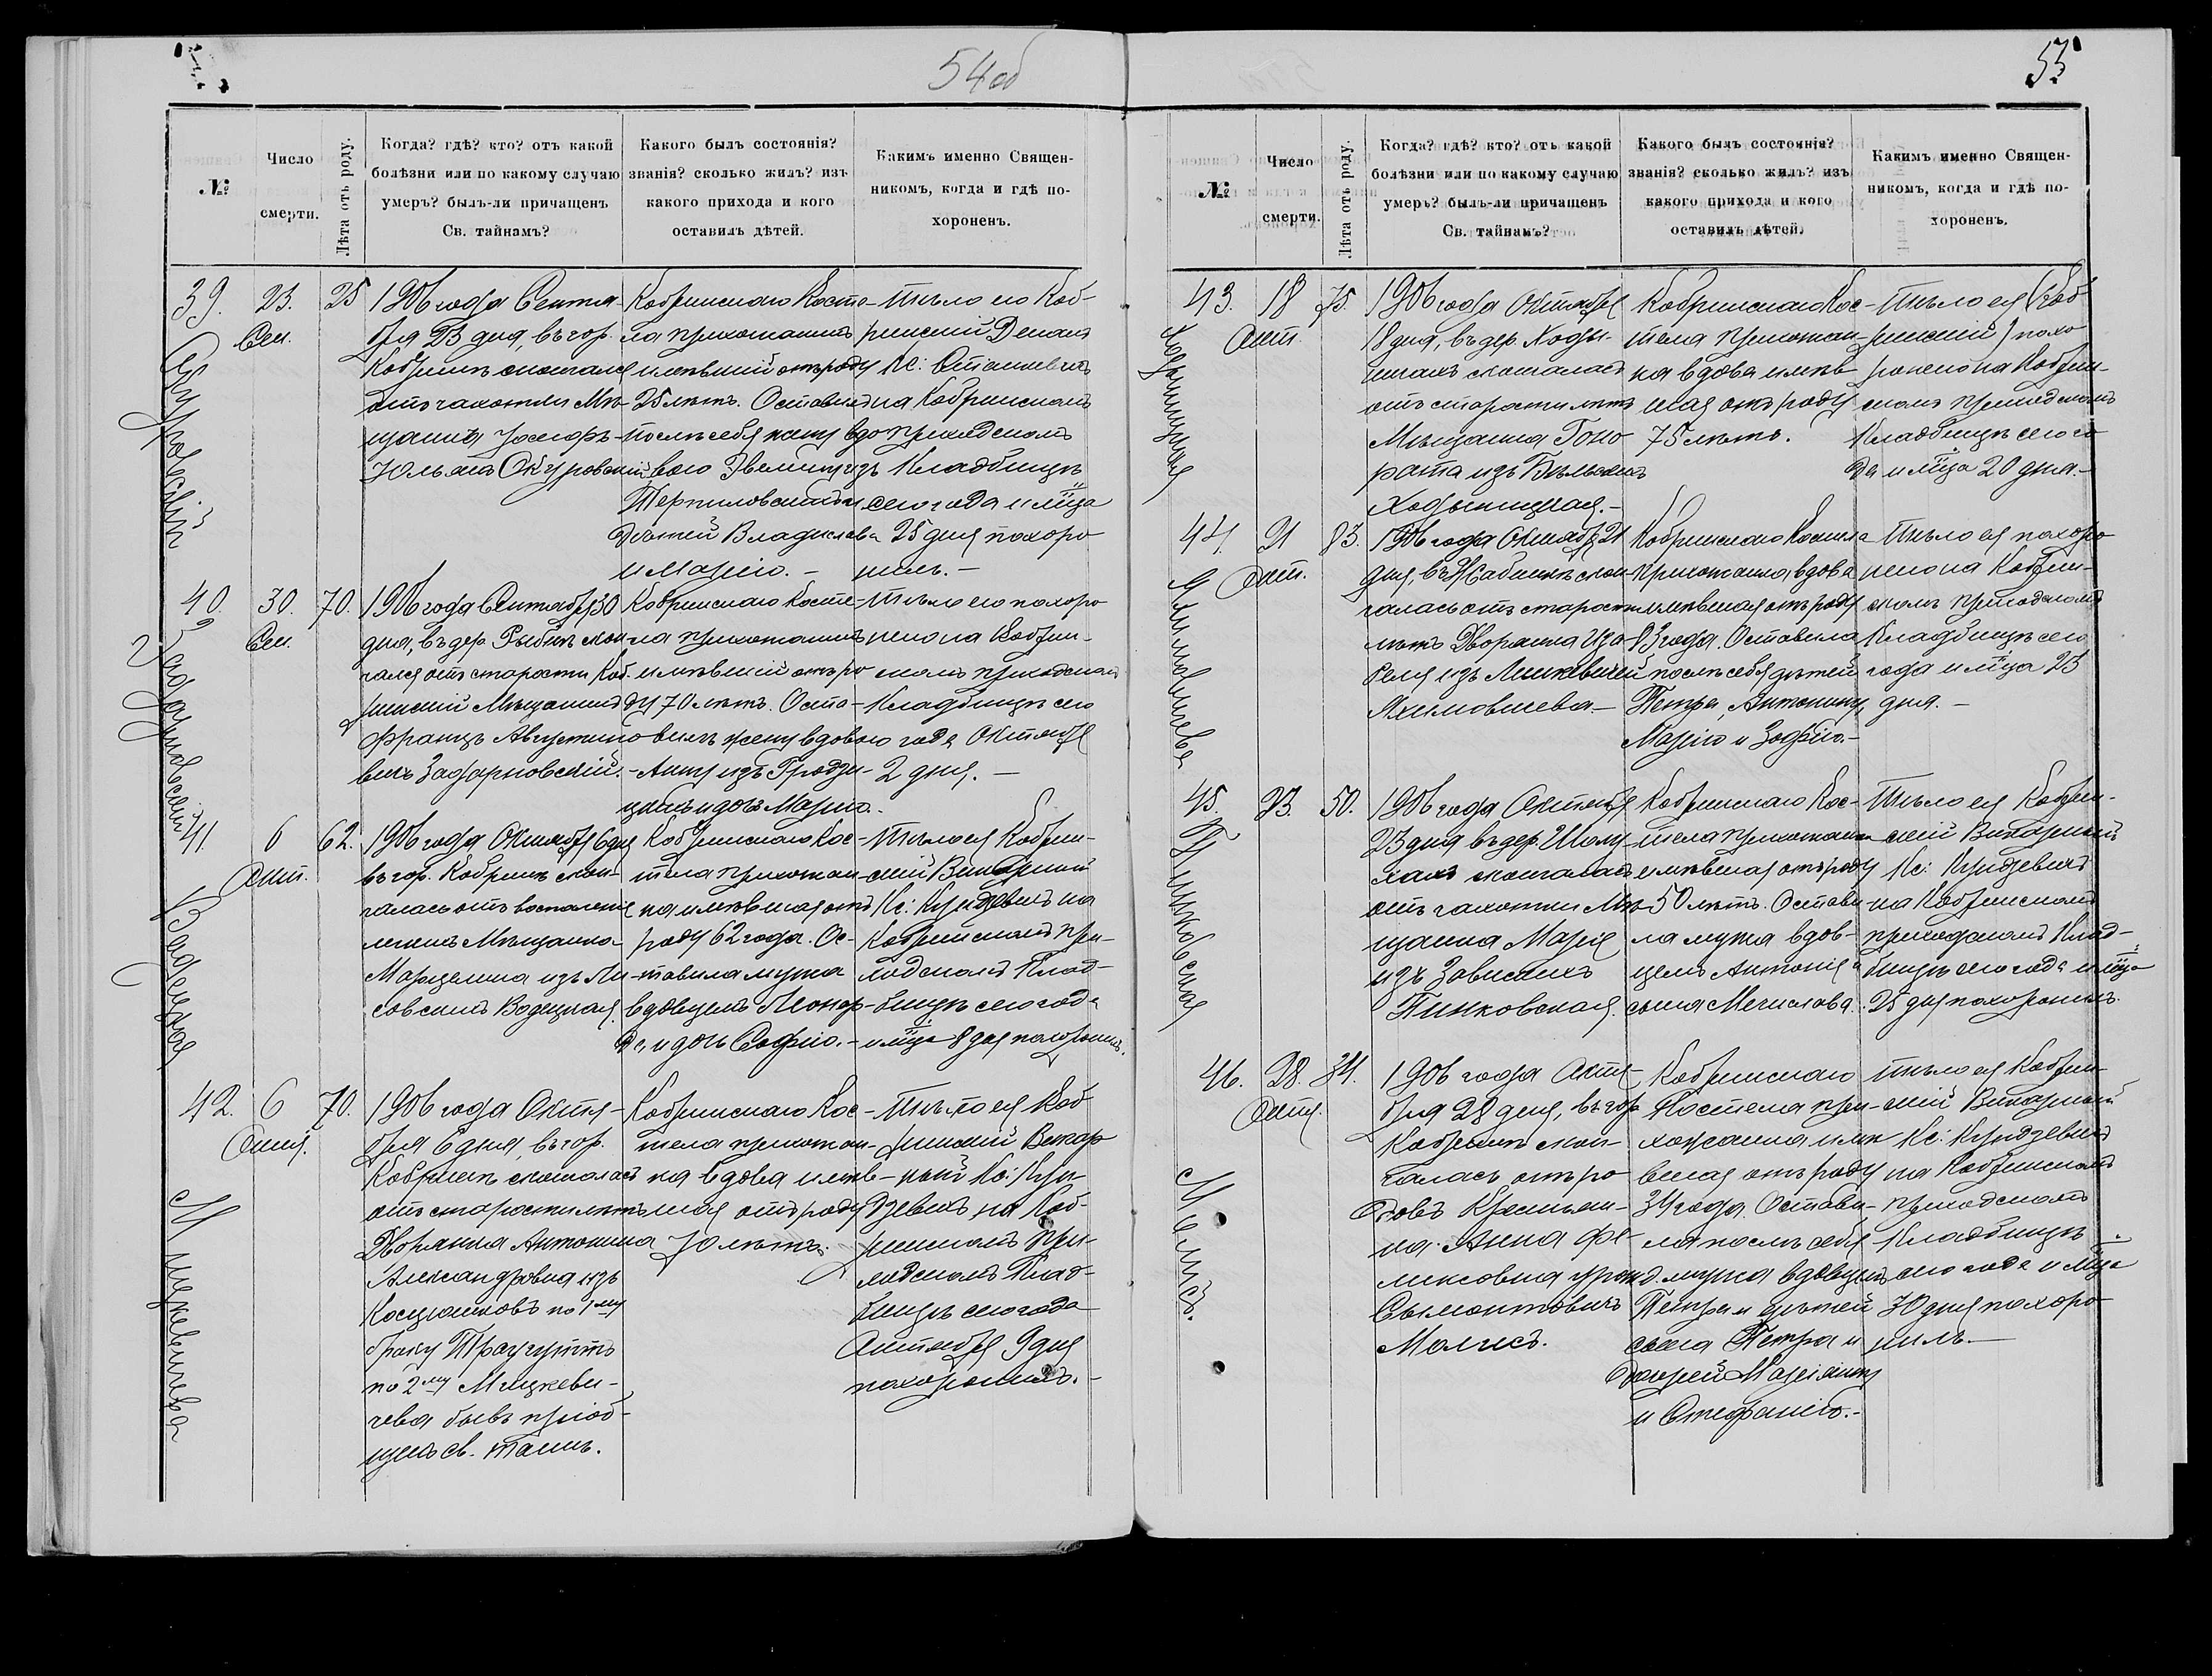 54 об
№
Число
смерти.
Лѣта отъ роду.
Когда? гдѣ? кто? отъ какой
болѣзни или по какому случаю
умеръ? былъ-ли причащенъ
Св. тайнамъ?
Какого былъ состоянія?
званія? сколько жилъ? изъ
какого прихода и кого
оставилъ дѣтей.
Какимъ именно Священ-
никомъ, когда и гдѣ по-
хороненъ.
39.
Окуровскій
23.
Сен.
25
1906 года Сентя-
бря 23 дня, въ гор.
Кобринѣ скончался
отъ чахотки Мѣ-
щанинъ Іосифъ-
Юльянъ Окуровскій
Кобринскаго Косте-
ла прихожанинъ
имѣвшій отъ роду
25 лѣтъ. Оставилъ
послѣ себя жену вдо-
вою Эвелину изъ
Терпиловскихъ и
дѣтей Владислава
и Марію.-
Тѣло его Коб-
ринскій Деканъ
Кс:
на Кобринскомъ
приходскомъ
Кладбищѣ
сего года и м̃ца
25 дня похоро
нилъ.-
40.
Задарновскій
30.
Сен.
70.
1906 года Сентября 30
дня, въ дер. Рыбнѣ скон-
чался отъ старости Коб-
ринскій Мѣщанинъ
Францъ Августино
вичъ Задарновскій.-
Кобринскаго Косте-
ла прихожанинъ
имѣвшій отъ ро
ду 70 лѣтъ. Оста-
вилъ жену вдовою
Анну изъ Гродзи-
цкихъ и дочь Марію.
Тѣло его похоро
нено на Кобрин-
скомъ приходском
Кладбищѣ сего
года Октября
2 дня.-
41.
Водецкая
6
Окт.
62.
1906 года Октября 6 дня
въ гор. Кобринѣ скон-
чалась отъ воспаленія
легкихъ Мѣщанка
Марцелина изъ Ли-
совскихъ Водецкая.
Кобринскаго Кос-
тела прихожан-
ка имѣвшая отъ
роду 62 года. Ос-
тавила мужа
вдовцемъ Леонар-
да, и дочь Софію.-
Тѣло ея Кобрин-
скій Викарный
Кс: Кундзевичъ на
Кобринскомъ при-
ходскомъ Клад-
бищѣ сего года
и м̃ца 8 дня похоронилъ.
42.
Мицкевичева
6
Окт.
70.
1906 года Октя-
бря 6 дня, въ гор.
Кобринѣ скончалась
отъ старости лѣтъ
Дворянка Антонина
Александровна изъ
Косцюшковъ по 1му
браку Траугуттъ
по 2му Мицкеви-
чева бывъ пріоб-
щена св. таинъ.
Кобринскаго Кос-
тела прихожан-
ка вдова имѣв-
шая отъ роду
70 лѣтъ.
Тѣло ея Коб
ринскій Викар
ный Кс: Кун-
дзевичъ на Коб-
ринскомъ при-
ходскомъ Клад-
бищѣ сего года
Октября 9 дня
похоронилъ.-
55
№
Число
смерти.
Лѣта отъ роду.
Когда? гдѣ? кто? отъ какой
болѣзни или по какому случаю
умеръ? былъ-ли причащенъ
Св. тайнамъ?
Какого былъ состоянія?
званія? сколько жилъ? изъ
какого прихода и кого
оставилъ дѣтей.
Какимъ именно Священ-
никомъ, когда и гдѣ по-
хороненъ.
43.
Ходыницкая
18
Окт.
75.
1906 года Октября
18 дня, въ дер. Ходы-
ничахъ скончалась
отъ старости лѣтъ
Мѣщанка Гоно
рата изъ Бѣльскихъ
Ходыницкая.-
Кобринскаго Кос-
тела прихожан-
ка вдова имѣв
шая отъ роду
75 лѣтъ.
Тѣло ея (Коб
ринскій) похо
ронено на Кобрин-
скомъ приходскомъ
Кладбищѣ сего го
да и м̃ца 20 дня.-
44.
Яхимовичева
21
Окт.
83.
1906 года Октября 21
дня, въ Жабинкѣ скон-
чалась отъ старости
лѣтъ Дворянка Иза-
белла изъ Линкевичей
Яхимовичева.-
Кобринскаго Костела
прихожанка, вдова
имѣвшая отъ роду
83 года. Оставила
послѣ себя дѣтей
Петра, Антонину,
Марію и Зофію.-
Тѣло ея похоро
нено на Кобрин-
скомъ приходскомъ
Кладбищѣ сего
года и м̃ца 23
дня.-
45.
Пинковская
23.
50.
1906 года Октября
23 дня въ дер.
скончалась
отъ чахотки Мѣ-
щанка Марія
изъ Завискихъ
Пинковская.
Кобринскаго Кос-
тела прихожанка
имѣвшая отъ роду
50 лѣтъ. Остави-
ла мужа вдов-
цемъ Антонія и
сына Мечислава.
Тѣло ея Кобрин-
скій Викарный
Кс: Кундзевичъ
на Кобринскомъ
приходскомъ Клад-
бищѣ сего года и м̃ца
25 дня похоронилъ.
46.
Молисъ.
28.
Окт.
34.
1906 года Октя-
бря 28 дня, въ гор.
Кобринѣ скон-
чалась отъ ро
довъ Крестьян-
ка Анна Фе-
ликсовна урожд.
Сымонтовичъ
Молисъ.
Кобринскаго
Костела при-
хожанка имѣ
вшая отъ роду
34 года. Остави-
ла послѣ себя
мужа вдовцемъ
Петра и дѣтей
сына Петра и
дочерей Маріянну
и Стефанію.-
Тѣло ея Кобрин-
скій Викарный
Кс: Кундзевичъ
на Кобринскомъ
приходскомъ
Кладбищѣ
сего года и м̃ца
30 дня похоро
нилъ.-